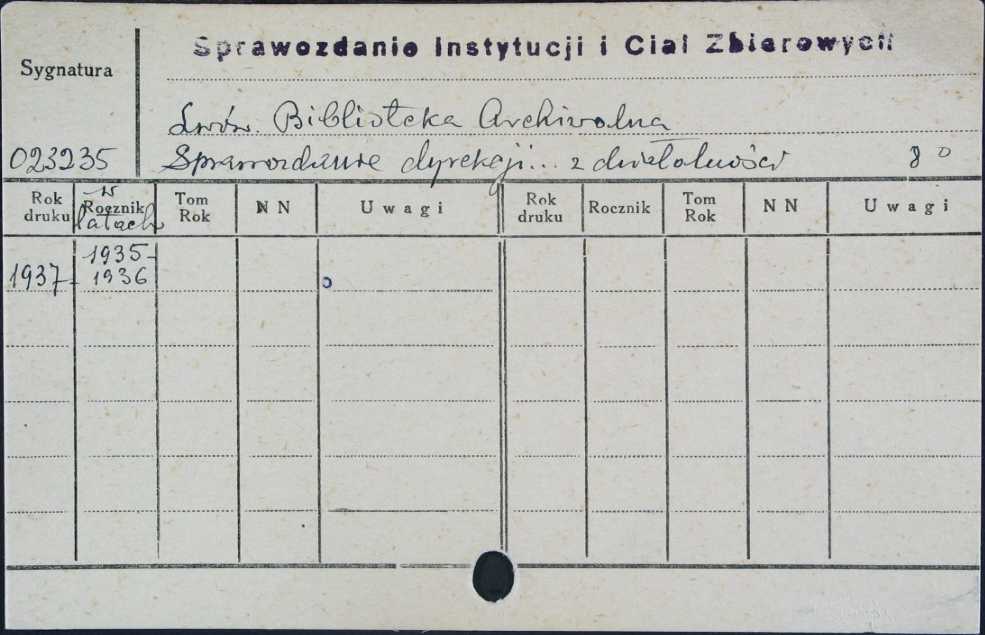 Sprawozdanie Instytucji i Ciał Zbiorowych
Sygnatura
Lwów. Biblioteka Archiwalna
023235 Sprawozdanie dyrekcji... z działalności 8°
Rok druku w Rocznik latach Tom Rok NN Uwagi Rok druku Rocznik Tom Rok NN Uwagi
1937 1935-1936